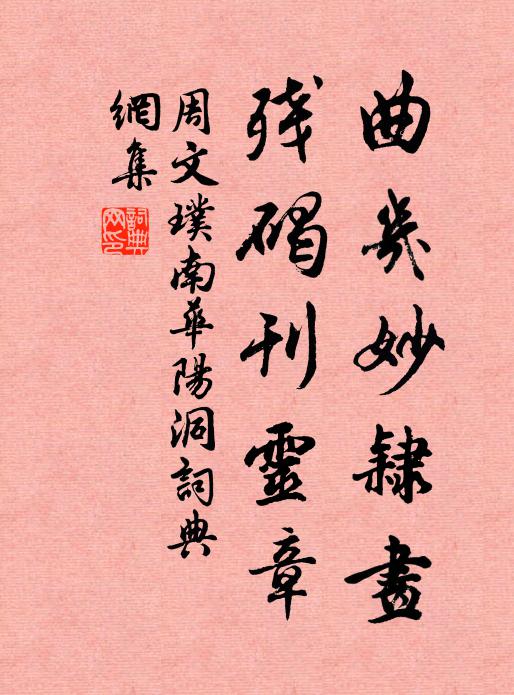 曲几妙隸畫
殘碣刊靈章
周文璞南華陽洞詞典
網集
詞典網印